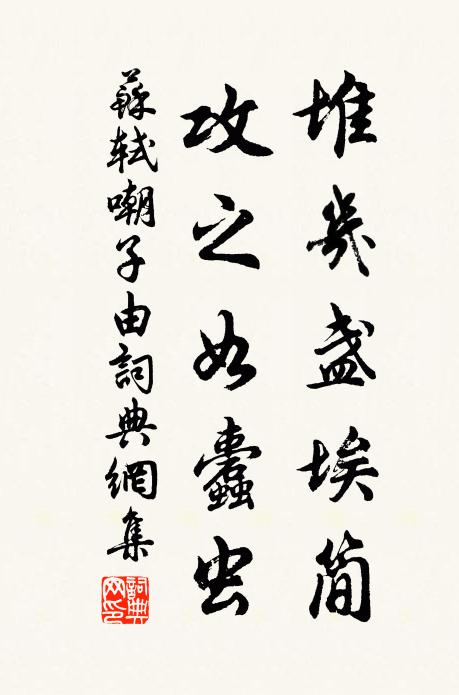 堆幾盡埃簡
攻之如蠹虫
蘇軾嘲子由詞典網集
詞典网印